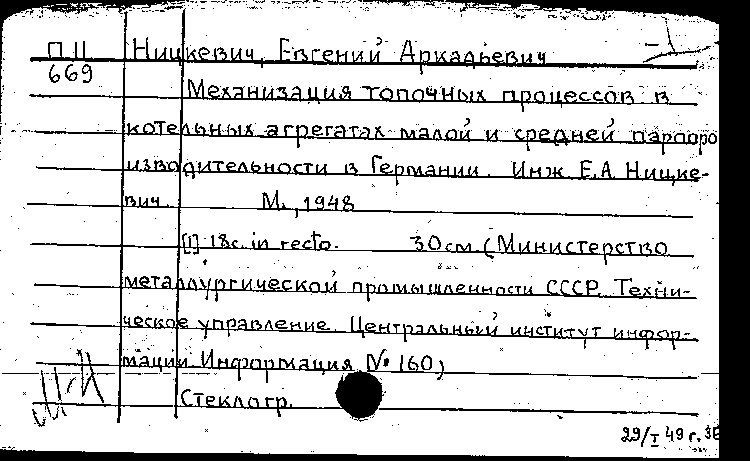 П II
669
Ницкевич, Евгений Аркадьевич
Механизация топочных процессов в
котельных агрегатах малой и средней паропро
изводительности в Германии. Инж. Е.А. Ницке-
вич. М., 1948
[1] 18с. in recto. 30 см. (Министерство
металлургической промышленности СССР. Техни-
ческое управление. Центральный институт инфор-
мации. Информация № 160)
Стеклогр.
29/I 49 г.